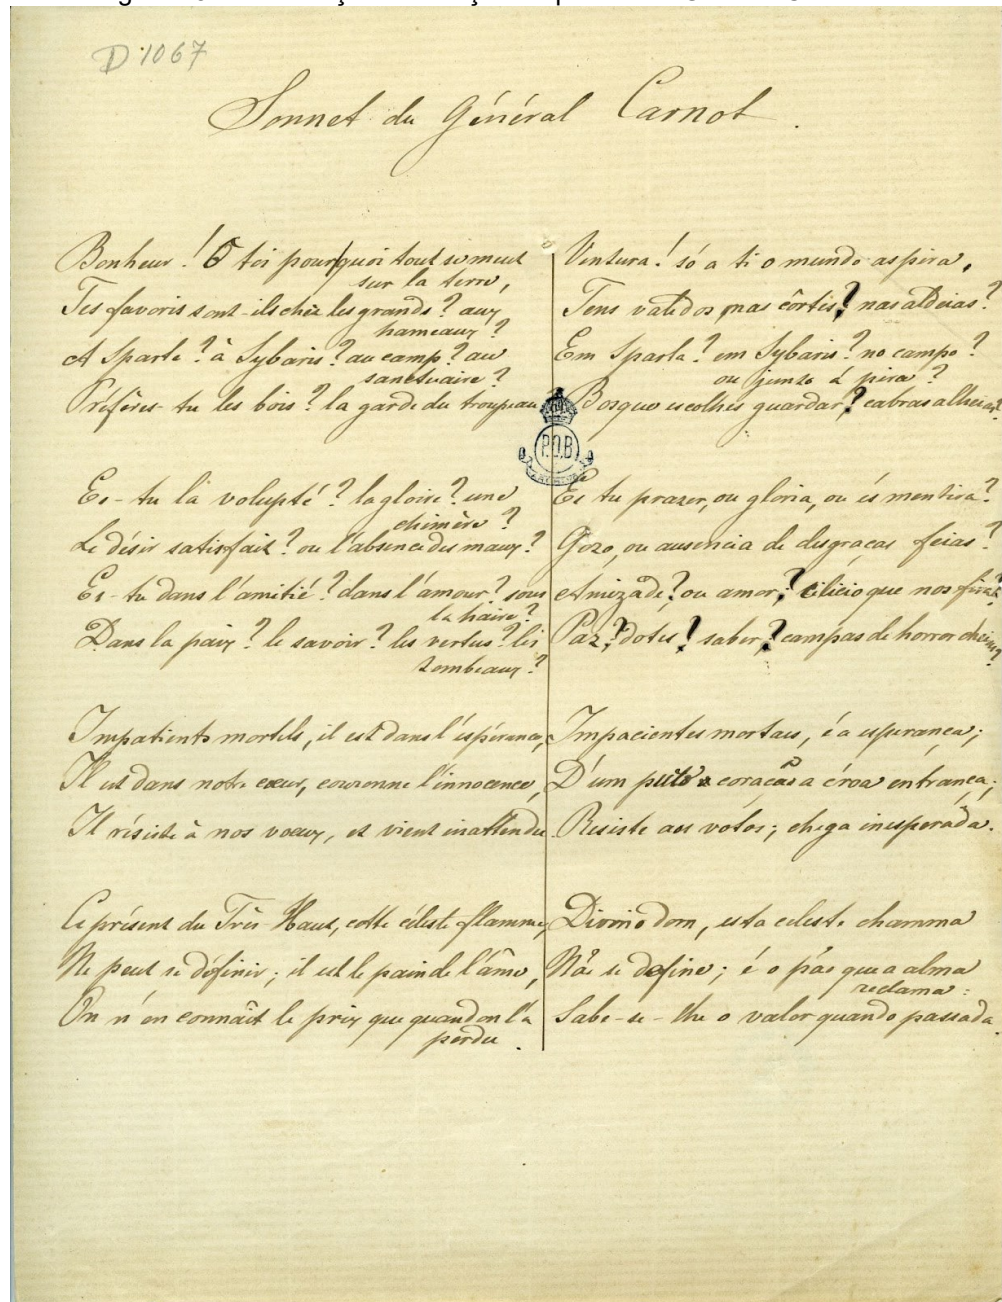 D 1067
Sonnet du Général Carnot.
Bonheur! Ô toi pourquoi tout se meut
sur la terre,
Tes favoris sont-ils chez les grands? aux
hameaux?
A Sparte? à Sybaris? au camp? au
sanctuaire?
Préfères-tu les bois? la garde du troupeau
Es-tu la volupté? la gloire? une
chimère?
Le désir satisfait? ou l'absence des maux?
Es-tu dans l'amitié? dans l'amour? sous
la haire?
Dans la paix? le savoir? les vertus? les
tombeaux?
Impatients mortels, il est dans l'espérance,
Il est dans notre cœur, couronne l'innocence,
Il résiste à nos voeux, et vient inattendu.
Ce présent du Très-Haut, cette céleste flamme,
Ne peut se définir; il est le pain de l'âme,
On n'en connaît le prix que quand on l'a
perdu.
Ventura! só a ti o mundo aspira,
Tens validos nas côrtes? nas aldeias?
Em Sparta? em Sybaris? no campo?
ou junto á pira?
Bosque escolhes guardar? cabras alheias?
És tu prazer, ou gloria, ou és mentira?
Gozo, ou ausencia de desgraças feias?
Amizade? ou amor? cilicio que nos fira?
Paz? dotes? saber? campas de horror cheias?
Impacientes mortaes, é a esperança;
D'um coração a c'roa entrança;
Resiste aos votos; chega inesperada.
Divino dom, esta celeste chamma
Não se define; é o pão que a alma
reclama:
Sabe-se-lhe o valor quando passada.
P.D.B